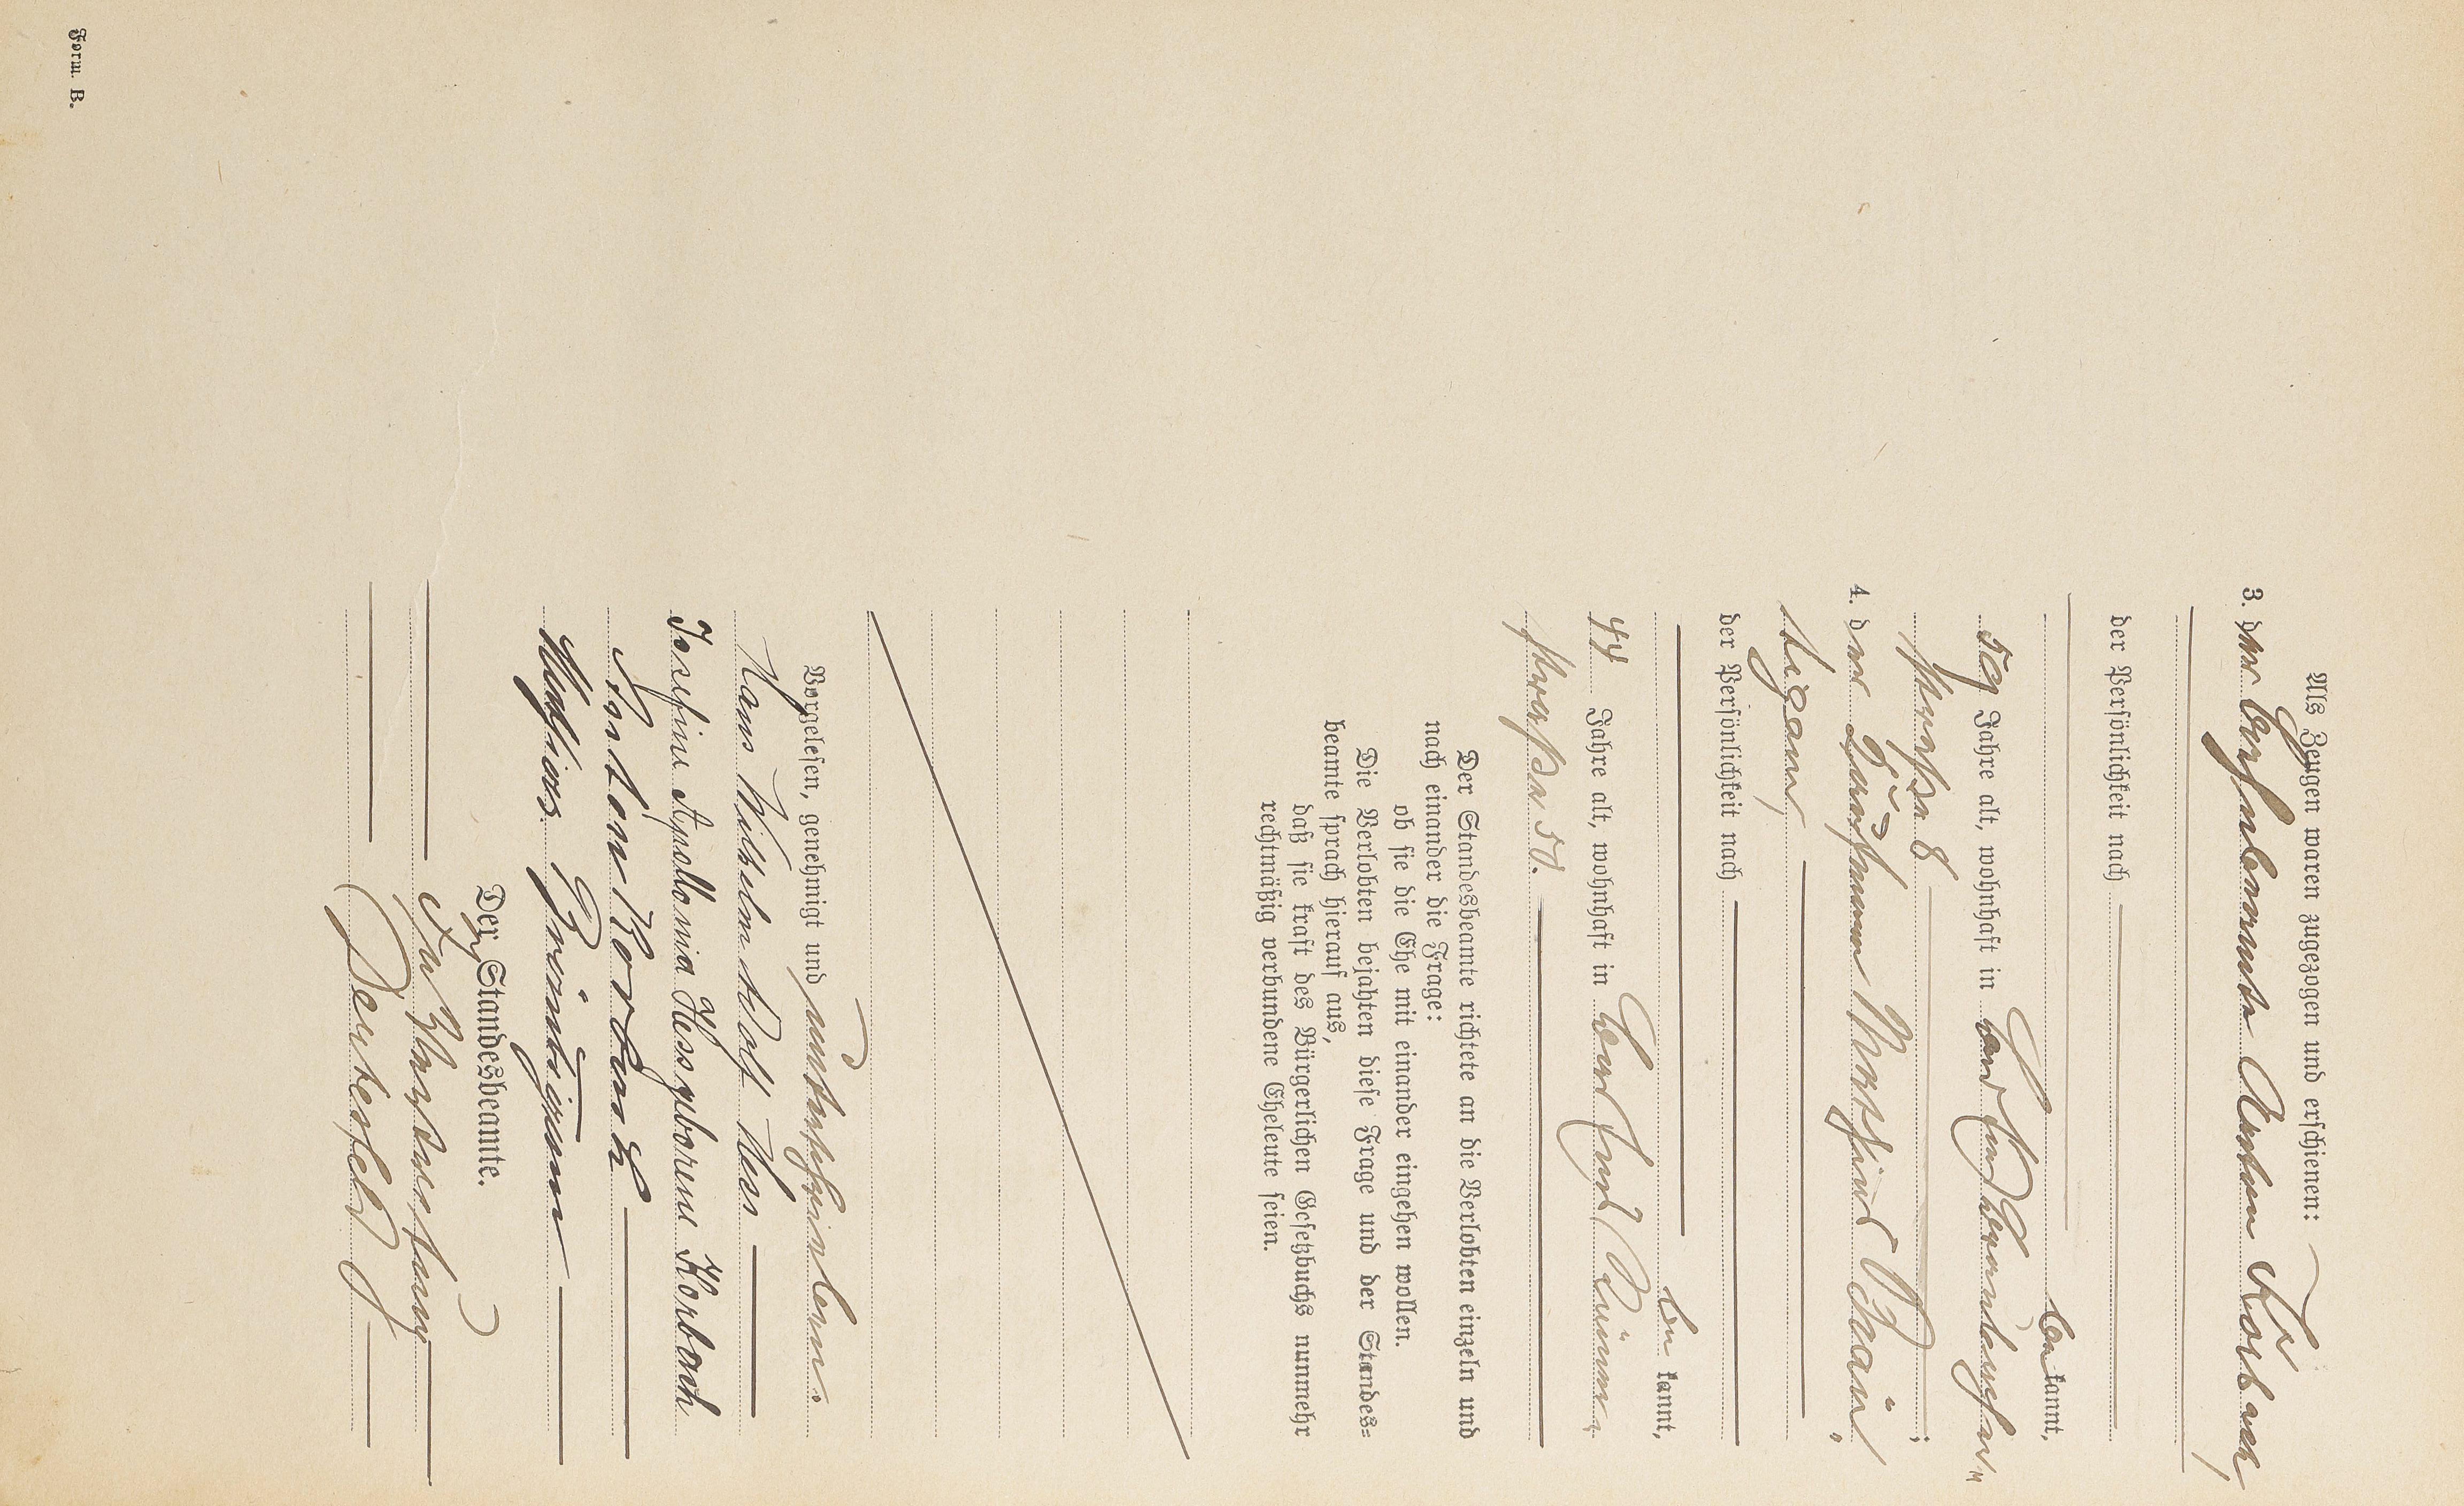 Als Zeugen waren zugezogen und erschienen:
3. der Anton Korbach,
der Persönlichkeit nach
be kannt,
59 Jahre alt, wohnhaft in
straße 8 ;
4. d er
der Persönlichkeit nach
be kannt,
44 Jahre alt, wohnhaft in
straße 50.
Der Standesbeamte richtete an die Verlobten einzeln und
nach einander die Frage:
ob sie die Ehe mit einander eingehen wollen.
Die Verlobten bejahten diese Frage und der Standes-
beamte sprach hierauf aus,
daß sie kraft des Bürgerlichen Gesetzbuchs nunmehr
rechtmäßig verbundene Eheleute seien.
Vorgelesen, genehmigt und unterschrieben.
Hans Wilhelm Adolf Hess
Josefine Apollonia Hess geborene Korbach
Anton Korbach
Mathias
Der Standesbeamte.
In Vertretung
Form. B.